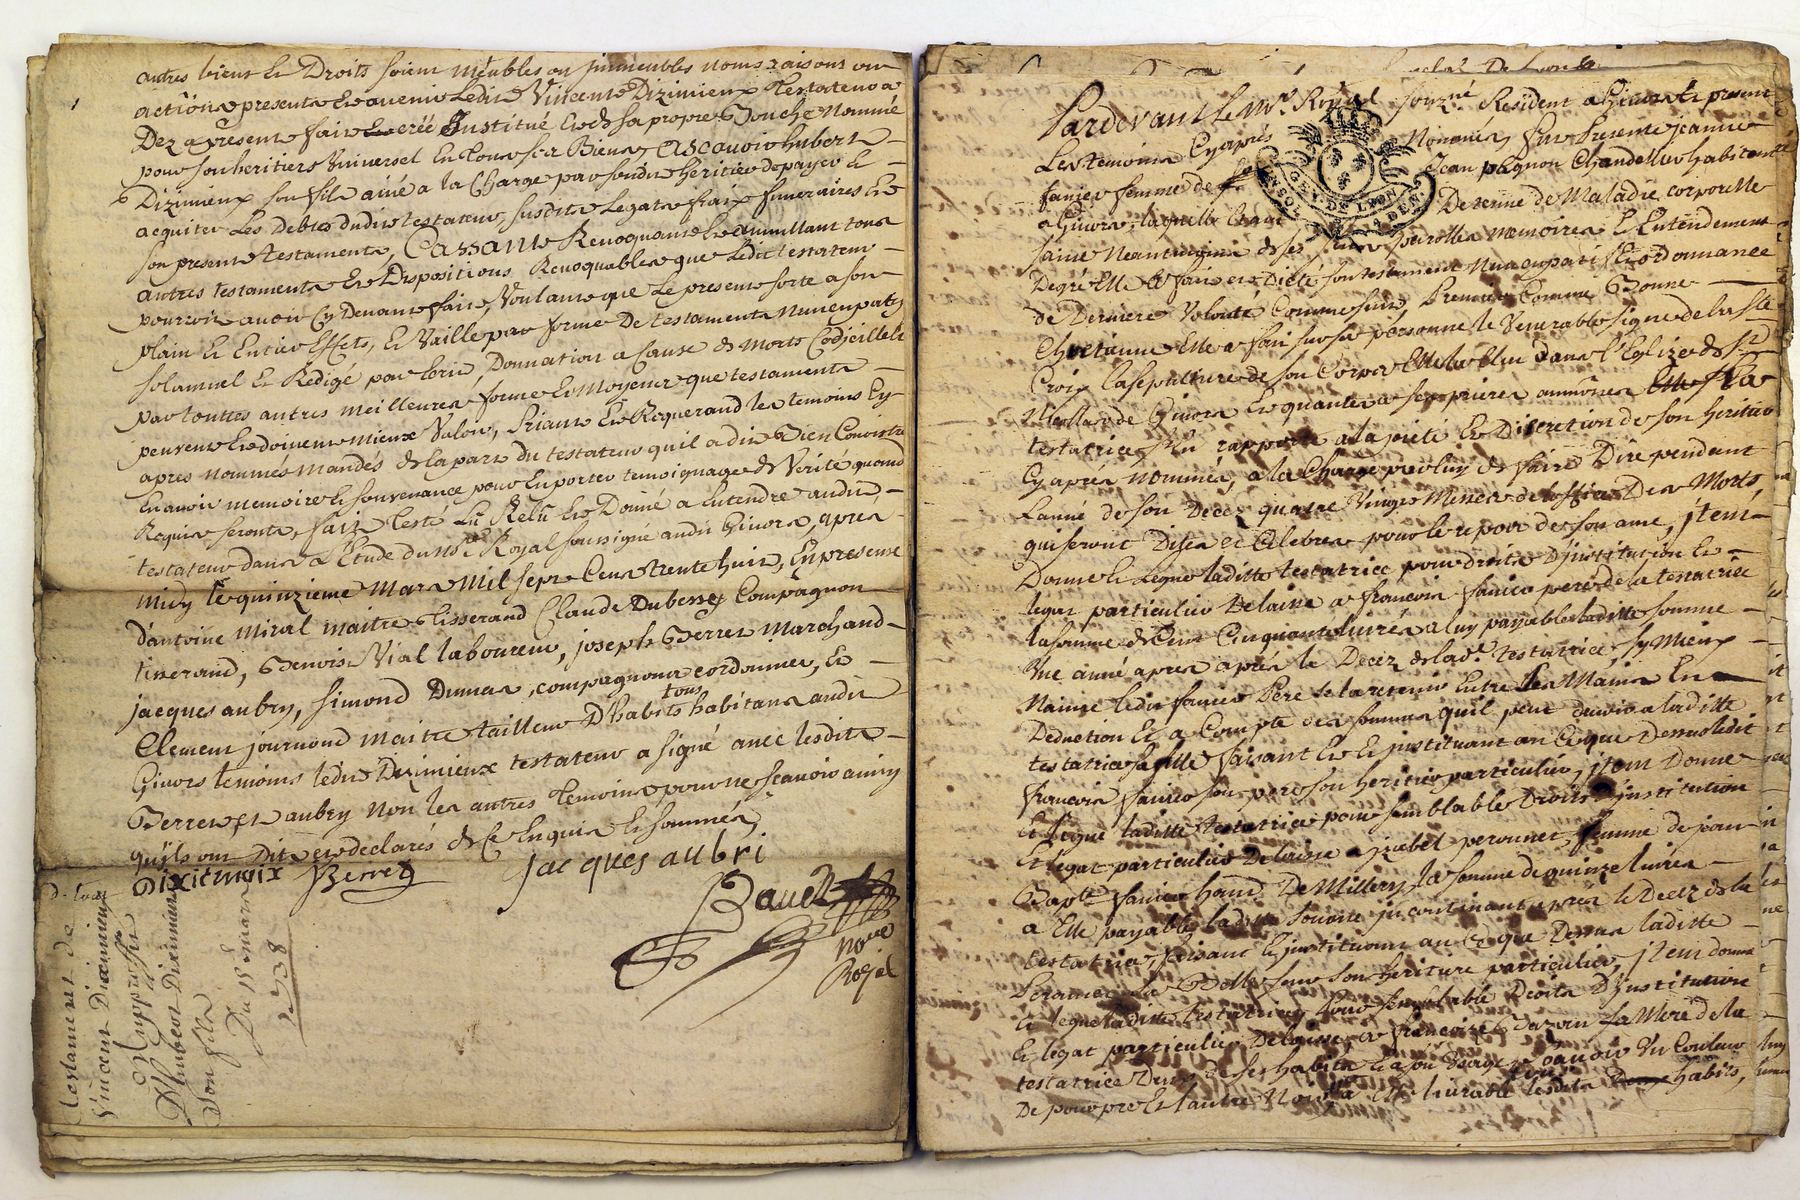 autres biens et Droits soient meubles ou jmmeubles noms raisons ou
actions presents et avenir Ledit Vincent Dizimieux Testateur a
Dez apresent fait creé Justitué et de sa propre Bouche Nommé
pour son heritier Universel En tous ses Biens ascavoir hubert
Dizimieux son fils ainé a la Charge par sondit heritier de payer et
acquiter Les Debtes dudit testateur susdits Legats fraix funeraires et
son present testament, Cassant Revoquant et annullant tous
autres testaments et Dispositions Revoquables que Ledit testateur
pourroit avoir Cy Devant fait, Voulant que Le present sorte a son
plain et Entier Effets, et Vaille par forme De testament Nuncupatif
solannel et Redigé par Ecrit, Donnation a Cause de Morts Codicille et
par touttes autres meilleures forme et moyens que testaments
peuvent et doivent mieux Valoir, Priant et Requerand les temoins Cy
apres nommés mandés de la part du testateur quil a dit Bien Connoitre
En avoir memoire et souvenance pour En porter temoignage de Verité quand
Requis seront, fait Testé Lû Relû et Donné a Entendre audit
testateur dans L'Etude du Nore Royal soussigné audit Givors, apres
midy le quinzieme Mars Mil sept Cens trente huit, En presence
d'antoine Miral maitre Tisserand Claude Dubessy Compagnon
tisserand, Benoist Vial laboureur, joseph Berret Marchand
jacques aubry, Simond Dumas, compagnons cordonnier, et
Clement journoud Maitre tailleur D'habits tous habitans audit
Givors temoins ledit Dizimieux testateur a signé avec lesdits
Berret et aubry non les autres Temoins pour ne scavoir ainsy
quils ont Dit et declarés de Ce Enquis et sommés
Dixitmoix Berret jacques aubri
Nore
Royal
testament de
Vincent Dizimieux
au proffit
D'humbert Dizimieux
son fils
Du 15e mars
1738
Pardevant Le Nre Royal souzné Resident a Givors et present
Les temoins Cy aprés Nommés fut Presente jeanne
fanier femme de Jean pagnon Chandellier habitante
a Givors, laquelle Etant Detenue de Maladie corporelle
saine Neantmoins de ses sens parolles memoires Et Entendement
Degré Elle a fait et Dicté son testament Nuncupatif et ordonnance
de Derniere Volonté Comme suit, Premier Comme Bonne
Chretienne Elle a fait sur sa personne le Venerable signe de la Ste
Croix lasepulture de son Corps Elle la Elu Dans l'Eglize de St
Nicollas de Givors et quant a ses prieres aumônes
testatrice s'En rapporte a la pieté et Discretion de son heritier
Cy aprés nommés, a la Charge par luy de faire Dire pendant
Lanné de son Decés quatre Vingt Messes de loffice Des Morts,
qui seront Dites et Celebrés pour le repos de son ame, jtem
Donne et Legue laditte testatrice pour droits D'justitution et
legat particulier Delaisse a francois fanier pere de la testatrice
la somme de Cent Cinquante livres a luy payable laditte somme
Une année apres aprés le Decez de lade testatrice, sy Mieux
Naime ledit fanier Pere se la retenir Entre ses Mains En
Deduction et a Compte des sommes quil peut devoir a laditte
testatrice sa fille faisant et et justituant au Ce que Dessus ledit
francois fanier son pere son heritier particulier, jtem Donne
et Legue laditte testatrice pour semblable Droits D'justitution
Et legat particulier Delaisse a perounet, femme de jean
Bapte fanier De Millery la somme de quinze livres
a Elle payable laditte somme jncontinant aprés le Decez de la
testatrice, faisant et justituant au Ce que Dessus laditte
son heritiere particulier, jtem donne
et legue laditte testatrice, Pour semblable Droits D'justitution
Et legat particulier Delaisse a francoise sa Mere de la
testatrice Deux de ses habits a son Usage scavoir Un Couleur
De pourpre et lautre Noir, a Elle livrable lesdits habits,